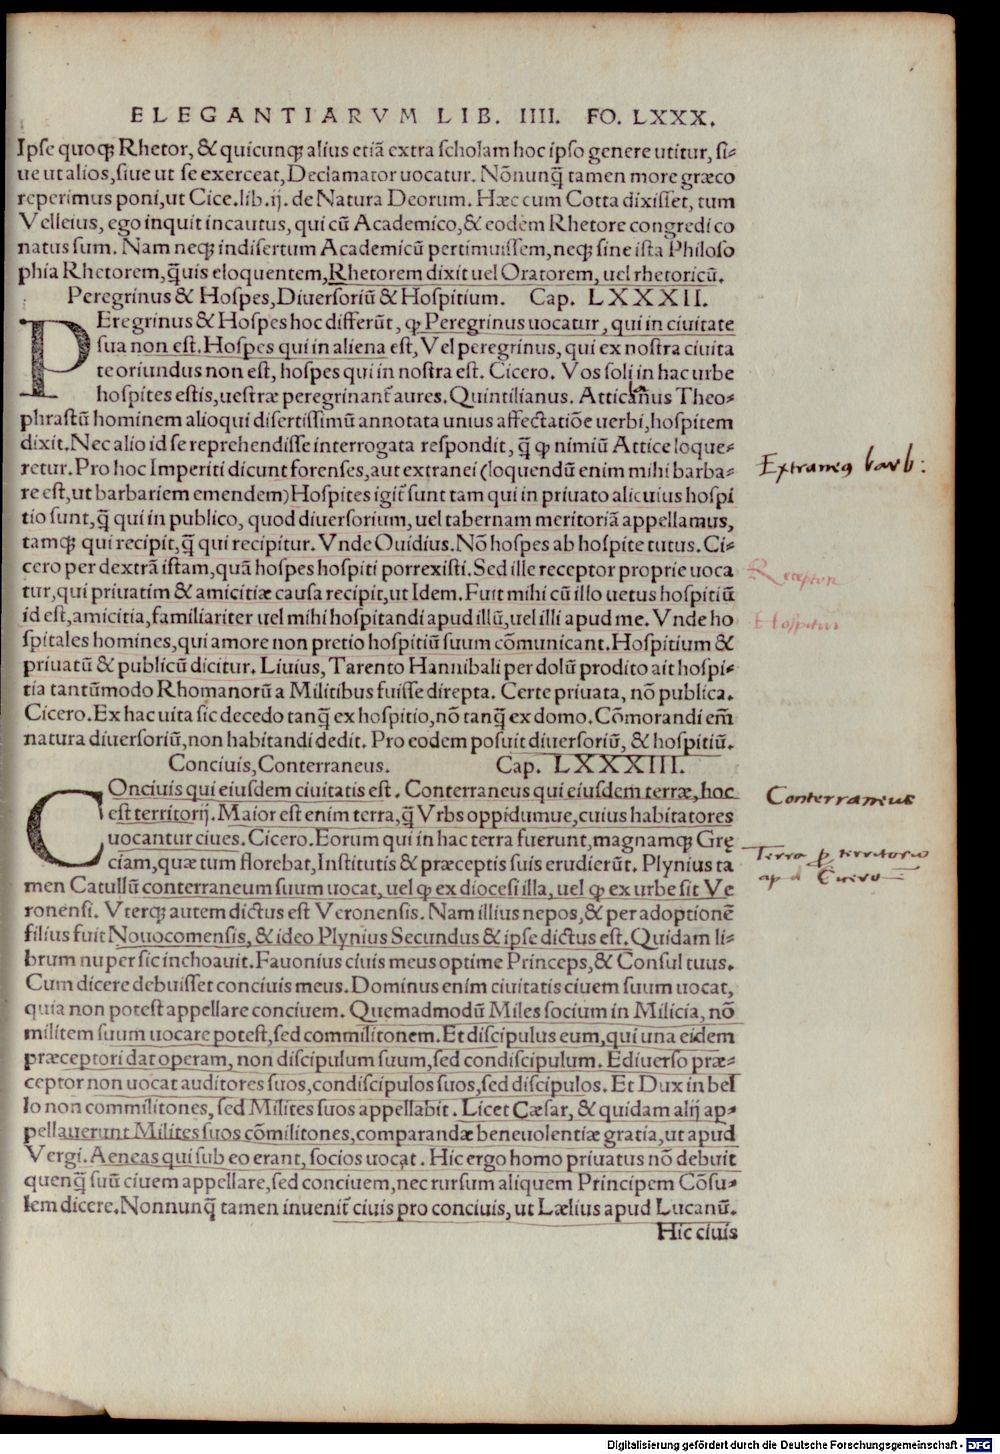 ELEGANTIARVM LIB. IIII. FO. LXXX.
Ipse quoqꝫ Rhetor, & quicunqꝫ alius etiã extra scholam hoc ipso genere utitur, si-
ue ut alios, siue ut se exerceat, Declamator uocatur. Nõnunq̃ tamen more græco
reperimus poni, ut Cice. lib. ij. de Natura Deorum. Hæc cum Cotta dixisset, tum
Velleius, ego inquit incautus, qui cũ Academico, & eodem Rhetore congredi co
natus sum. Nam neqꝫ indisertum Academicũ pertimuissem, neqꝫ sine ista Philoso
phia Rhetorem, q̃uis eloquentem, Rhetorem dixit uel Oratorem, uel rhetoricũ.
Peregrinus & Hospes, Diuersoriũ & Hospitium. Cap. LXXXII.
PEregrinus & Hospes hoc differũt, ꝙ Peregrinus uocatur, qui in ciuitate
sua non est. Hospes qui in aliena est, Vel peregrinus, qui ex nostra ciuita
te oriundus non est, hospes qui in nostra est. Cicero. Vos soli in hac urbe
hospites estis, uestræ peregrinant᷑ aures. Quintilianus. Atticanus Theo-
phrastũ hominem alioqui disertissimũ annotata unius affectatiõe uerbi, hospitem
dixit. Nec alio id se reprehendisse interrogata respondit, q̃ ꝙ nimiũ Attice loque-
retur. Pro hoc Imperiti dicunt forenses, aut extranei (loquendũ enim mihi barba-
re est, ut barbariem emendem) Hospites igit᷑ sunt tam qui in priuato alicuius hospi
tio sunt, q̃ qui in publico, quod diuersorium, uel tabernam meritoriã appellamus,
tamqꝫ qui recipit, q̃ qui recipitur. Vnde Ouidius. Nõ hospes ab hospite tutus. Ci-
cero per dextrã istam, quã hospes hospiti porrexisti. Sed ille receptor proprie uoca
tur, qui priuatim & amicitiæ causa recipit, ut Idem. Fuit mihi cũ illo uetus hospitiũ
id est, amicitia, familiariter uel mihi hospitandi apud illũ, uel illi apud me. Vnde ho
spitales homines, qui amore non pretio hospitiũ suum cõmunicant. Hospitium &
priuatũ & publicũ dicitur. Liuius, Tarento Hannibali per dolũ prodito ait hospi-
tia tantũmodo Rhomanorũ a Militibus fuisse direpta. Certe priuata, nõ publica.
Cicero. Ex hac uita sic decedo tanq̃ ex hospitio, nõ tanq̃ ex domo. Cõmorandi em̃
natura diuersoriũ, non habitandi dedit. Pro eodem posuit diuersoriũ, & hospitiũ.
Conciuis, Conterraneus. Cap. LXXXIII.
COnciuis qui eiusdem ciuitatis est. Conterraneus qui eiusdem terræ, hoc
est territorij. Maior est enim terra, q̃ Vrbs oppidumue, cuius habitatores
uocantur ciues. Cicero. Eorum qui in hac terra fuerunt, magnamqꝫ Grę
ciam, quæ tum florebat, Institutis & præceptis suis erudierũt. Plynius ta
men Catullũ conterraneum suum uocat, uel ꝙ ex diocesi illa, uel ꝙ ex urbe sit Ve
ronensi. Vterqꝫ autem dictus est Veronensis. Nam illius nepos, & per adoptionẽ
filius fuit Nouocomensis, & ideo Plynius Secundus & ipse dictus est. Quidam li-
brum nuper sic inchoauit. Fauonius ciuis meus optime Princeps, & Consul tuus.
Cum dicere debuisset conciuis meus. Dominus enim ciuitatis ciuem suum uocat,
quia non potest appellare conciuem. Quemadmodũ Miles socium in Milicia, nõ
militem suum uocare potest, sed commilitonem. Et discipulus eum, qui una eidem
præceptori dat operam, non discipulum suum, sed condiscipulum. Ediuerso præ-
ceptor non uocat auditores suos, condiscipulos suos, sed discipulos. Et Dux in bel
lo non commilitones, sed Milites suos appellabit. Licet Cæsar, & quidam alij ap-
pellauerunt Milites suos cõmilitones, comparandæ beneuolentiæ gratia, ut apud
Vergi. Aeneas qui sub eo erant, socios uocat. Hic ergo homo priuatus nõ debuit
quenq̃ suũ ciuem appellare, sed conciuem, nec rursum aliquem Principem Cõsu-
lem dicere. Nonnunq̃ tamen inuenit᷑ ciuis pro conciuis, ut Lælius apud Lucanũ.
Hic ciuis
Extraneus barb:
Receptor
Hospitiũ
Conterraneus
Terra ꝓ territorio
apd Cicero
Digitalisierung gefördert durch die Deutsche Forschungsgemeinschaft - DFG